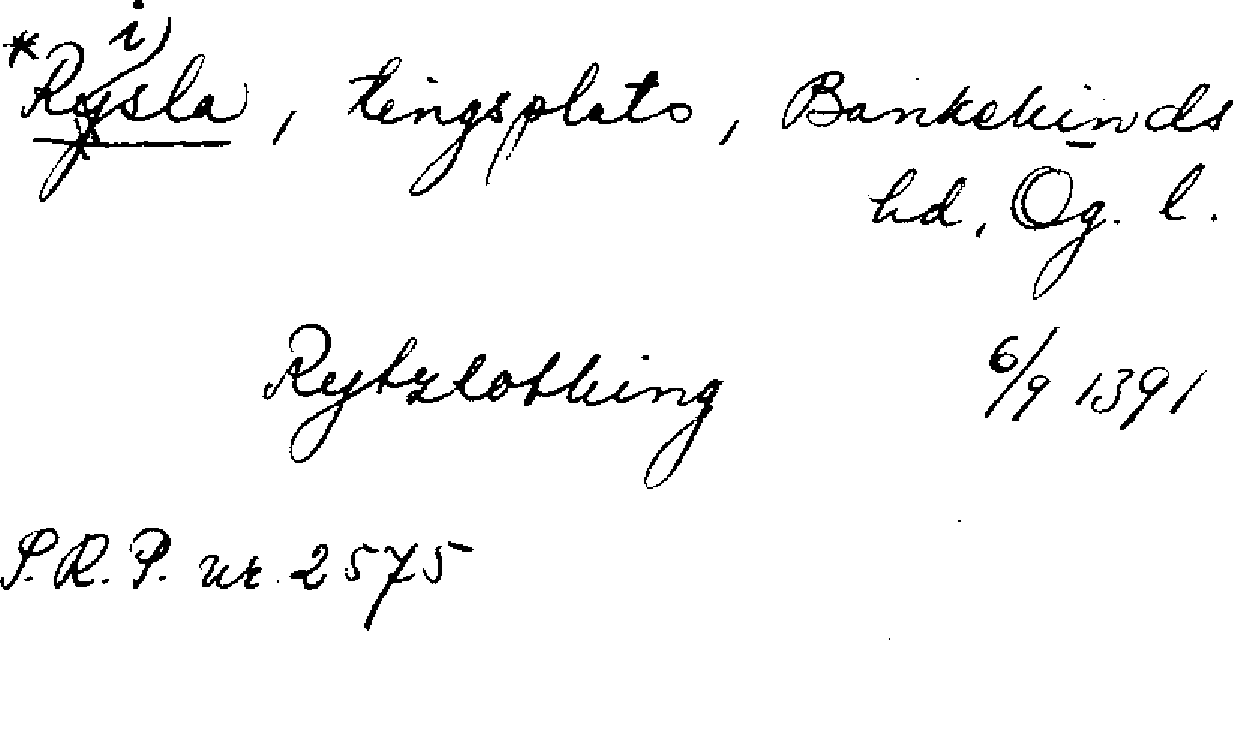 *Rysla i), tingsplats, Bankekinds
hd, Ög. l.
Rytzlothing 6/9 1391
P.R.P. nr. 2575